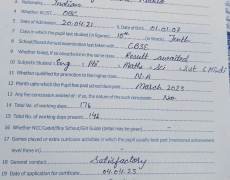 Nationality Indian
4. Whether SC/ST OBC
5. Date of Admission 20.04.21
7. Class in which the pupil last studied (in figures) 10th (in words) Tenth
8. School/Board Annual examination last taken with CBSE
9. Whether failed, if so once/twice in the same class Result awaited
10. Subjects Studied: Eng Hti Math Sci Sst
11. Whether qualified for promotion to the higher class N.A
12. Month upto which the pupil has paid school dues March 2023
13. Any fee concession availed of: if so, the nature of such concession No
14. Total No. of working days 176
15. Total No. of working days present 146
16. Whether NCC Cadet/Boy Scout/Girl Guide (detail may be given)
17. Games played or extra curricular activities in which the pupil usually took part (mentioned achievement level there in)
18. General conduct Satisfactory
19. Date of application for certificate 04.04.23